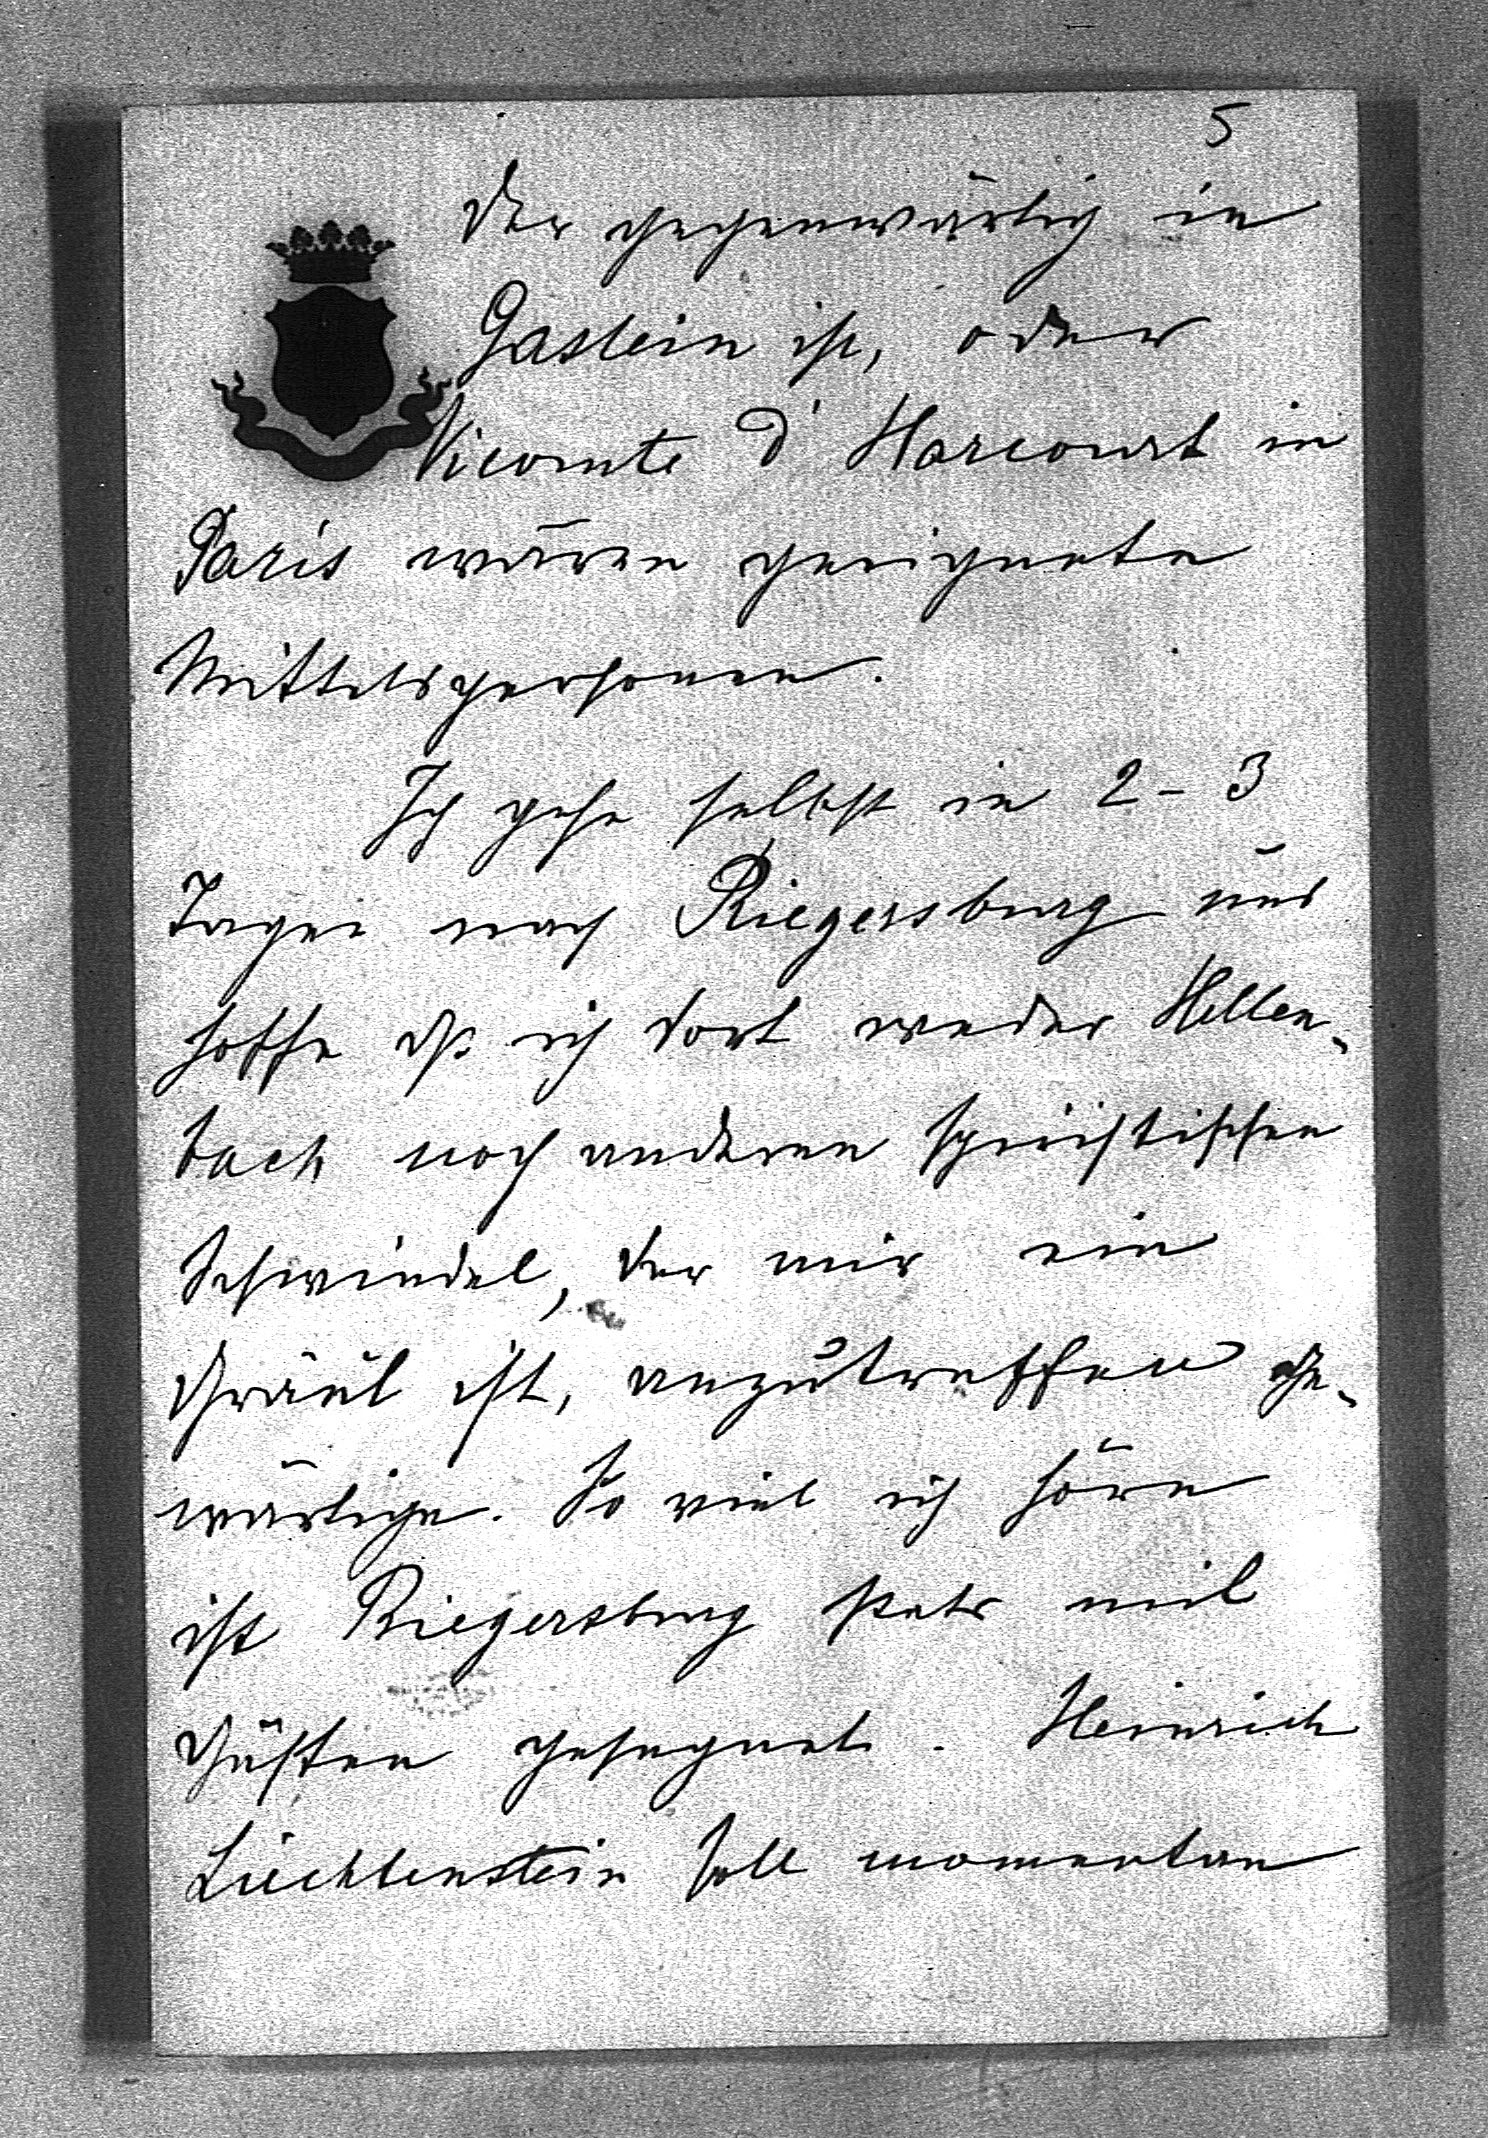 5
der gegenwärtig in
Gastein ist, oder
Vicomte d'Harcourt in
Paris wären geeignete
Mittelspersonen.
Ich gehe selbst in 2-3
Tagen nach Riegersburg und
hoffe dß ich dort weder Hellen-
bach noch anderen spiristischen
Schwindel, der mir ein
Gräuel ist, anzutreffen ge-
wärtige. So viel ich höre
ist Riegersburg stets mit
Gästen gesegnet. Heinrich
Liechtenstein soll momentan